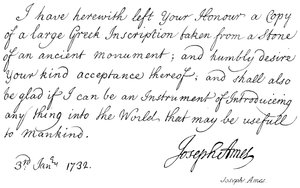 I have herewith left Your Honour a Copy
of a large Greek Inscription taken from a Stone
of an ancient monument; and humbly desire
your kind acceptance thereof; and shall also
be glad if I can be an Instrument of Introduceing
any thing into the World that may be usefull
to Mankind.
Joseph Ames
3rd Janry 1732.
Joseph Ames